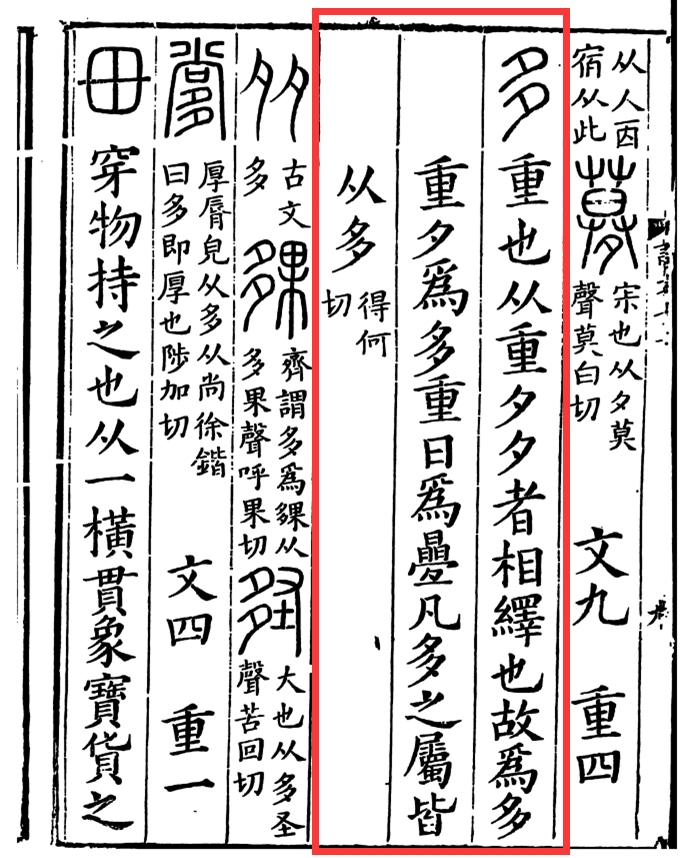 从人宿从此 宋也从夕莫聲莫白切 文九 重四
多 重也从重夕夕者相繹也故爲多
重夕爲多重日爲曡凡多之屬皆
从多 得何切
古文多 夥 齊謂多爲夥从多果聲呼果切 大也从多圣聲苦回切
厚脣皃从多从尚徐鍇曰多即厚也陟加切 文四 重一
毌 穿物持之也从一橫貫象寶貨之